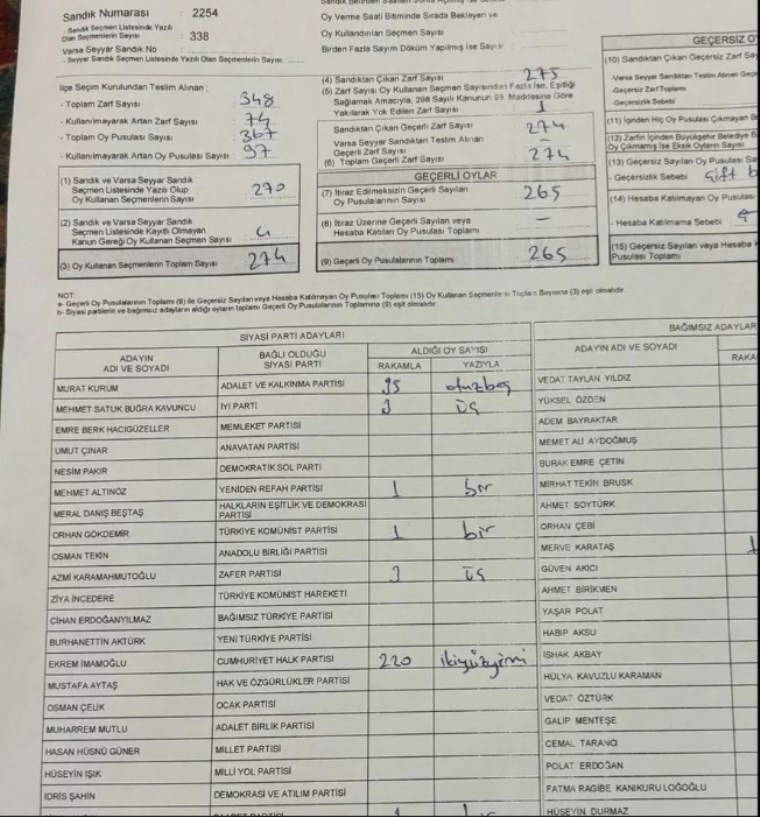 Sandık Numarası : 2254
- Sandık Seçmen Listesinde Yazılı
Olan Seçmenlerin Sayısı : 338
Varsa Seyyar Sandık No
- Seyyar Sandık Seçmen Listesinde Yazılı Olan Seçmenlerin Sayısı
Oy Verme Saati Bitiminde Sırada Bekleyen ve
Oy Kullandırılan Seçmen Sayısı
Birden Fazla Sayım Döküm Yapılmış İse Sayısı
İlçe Seçim Kurulundan Teslim Alınan :
- Toplam Zarf Sayısı : 348
- Kullanılmayarak Artan Zarf Sayısı : 74
- Toplam Oy Pusulası Sayısı : 367
- Kullanılmayarak Artan Oy Pusulası Sayısı : 97
(1) Sandık ve Varsa Seyyar Sandık
Seçmen Listesinde Yazılı Olup
Oy Kullanan Seçmenlerin Sayısı 270
(2) Sandık ve Varsa Seyyar Sandık
Seçmen Listesinde Kayıtlı Olmayan
Kanun Gereği Oy Kullanan Seçmen Sayısı 4
(3) Oy Kullanan Seçmenlerin Toplam Sayısı 274
(4) Sandıktan Çıkan Zarf Sayısı 275
(5) Zarf Sayısı Oy Kullanan Seçmen Sayısından Fazla İse, Eşitliği
Sağlamak Amacıyla, 298 Sayılı Kanunun 98. Maddesine Göre
Yakılarak Yok Edilen Zarf Sayısı 1
Sandıktan Çıkan Geçerli Zarf Sayısı 274
Varsa Seyyar Sandıktan Teslim Alınan
Geçerli Zarf Sayısı –
(6) Toplam Geçerli Zarf Sayısı 274
GEÇERLİ OYLAR
(7) İtiraz Edilmeksizin Geçerli Sayılan
Oy Pusulalarının Sayısı 265
(8) İtiraz Üzerine Geçerli Sayılan veya
Hesaba Katılan Oy Pusulası Toplamı –
(9) Geçerli Oy Pusulalarının Toplamı 265
GEÇERSİZ O
(10) Sandıktan Çıkan Geçersiz Zarf Sa
-Varsa Seyyar Sandıktan Teslim Alınan Geçe
-Geçersiz Zarf Toplamı
-Geçersizlik Sebebi
(11) İçinden Hiç Oy Pusulası Çıkmayan B
(12) Zarfın İçinden Büyükşehir Belediye B
Oy Çıkmamış İse Eksik Oyların Sayısı
(13) Geçersiz Sayılan Oy Pusulası Sa
- Geçersizlik Sebebi Çift b
(14) Hesaba Katılmayan Oy Pusulası
- Hesaba Katılmama Sebebi
(15) Geçersiz Sayılan veya Hesaba K
Pusulası Toplamı
NOT:
a- Geçerli Oy Pusulalarının Toplamı (9) ile Geçersiz Sayılan veya Hesaba Katılmayan Oy Pusulası Toplamı (15) Oy Kullanan Seçmenlerin Toplam Sayısına (3) eşit olmalıdır.
b- Siyasi partilerin ve bağımsız adayların aldığı oyların toplamı Geçerli Oy Pusulalarının Toplamına (9) eşit olmalıdır.
SİYASİ PARTİ ADAYLARI
ADAYIN ADI VE SOYADI BAĞLI OLDUĞU SİYASİ PARTİ ALDIĞI OY SAYISI
RAKAMLA YAZIYLA
MURAT KURUM ADALET VE KALKINMA PARTİSİ 35 otuzbeş
MEHMET SATUK BUĞRA KAVUNCU İYİ PARTİ 3 üç
EMRE BERK HACIGÜZELLER MEMLEKET PARTİSİ
UMUT ÇINAR ANAVATAN PARTİSİ
NESİM PAKIR DEMOKRATİK SOL PARTİ
MEHMET ALTINÖZ YENİDEN REFAH PARTİSİ 1 bir
MERAL DANIŞ BEŞTAŞ HALKLARIN EŞİTLİK VE DEMOKRASİ PARTİSİ
ORHAN GÖKDEMİR TÜRKİYE KOMÜNİST PARTİSİ 1 bir
OSMAN TEKİN ANADOLU BİRLİĞİ PARTİSİ
AZMİ KARAMAHMUTOĞLU ZAFER PARTİSİ 3 üç
ZİYA İNCEDERE TÜRKİYE KOMÜNİST HAREKETİ
CİHAN ERDOĞANYILMAZ BAĞIMSIZ TÜRKİYE PARTİSİ
BURHANETTİN AKTÜRK YENİ TÜRKİYE PARTİSİ
EKREM İMAMOĞLU CUMHURİYET HALK PARTİSİ 220 ikiyüzyirmi
MUSTAFA AYTAŞ HAK VE ÖZGÜRLÜKLER PARTİSİ
OSMAN ÇELİK OCAK PARTİSİ
MUHARREM MUTLU ADALET BİRLİK PARTİSİ
HASAN HÜSNÜ GÜNER MİLLET PARTİSİ
HÜSEYİN IŞIK MİLLİ YOL PARTİSİ
İDRİS ŞAHİN DEMOKRASİ VE ATILIM PARTİSİ
BAĞIMSIZ ADAYLAR
ADAYIN ADI VE SOYADI
RAKA
VEDAT TAYLAN YILDIZ
YÜKSEL ÖZDEN
ADEM BAYRAKTAR
MEMET ALİ AYDOĞMUŞ
BURAK EMRE ÇETİN
MİRHAT TEKİN BRUSK
AHMET SOYTÜRK
ORHAN ÇEBİ
MERVE KARATAŞ 1
GÜVEN AKICI
AHMET BİRİKMEN
YAŞAR POLAT
HABİP AKSU
İSHAK AKBAY
HÜLYA KAVUZLU KARAMAN
VEDAT ÖZTÜRK
GALİP MENTEŞE
CEMAL TARANCI
POLAT ERDOĞAN
FATMA RAGİBE KANIKURU LOĞOĞLU
HÜSEYİN DURMAZ